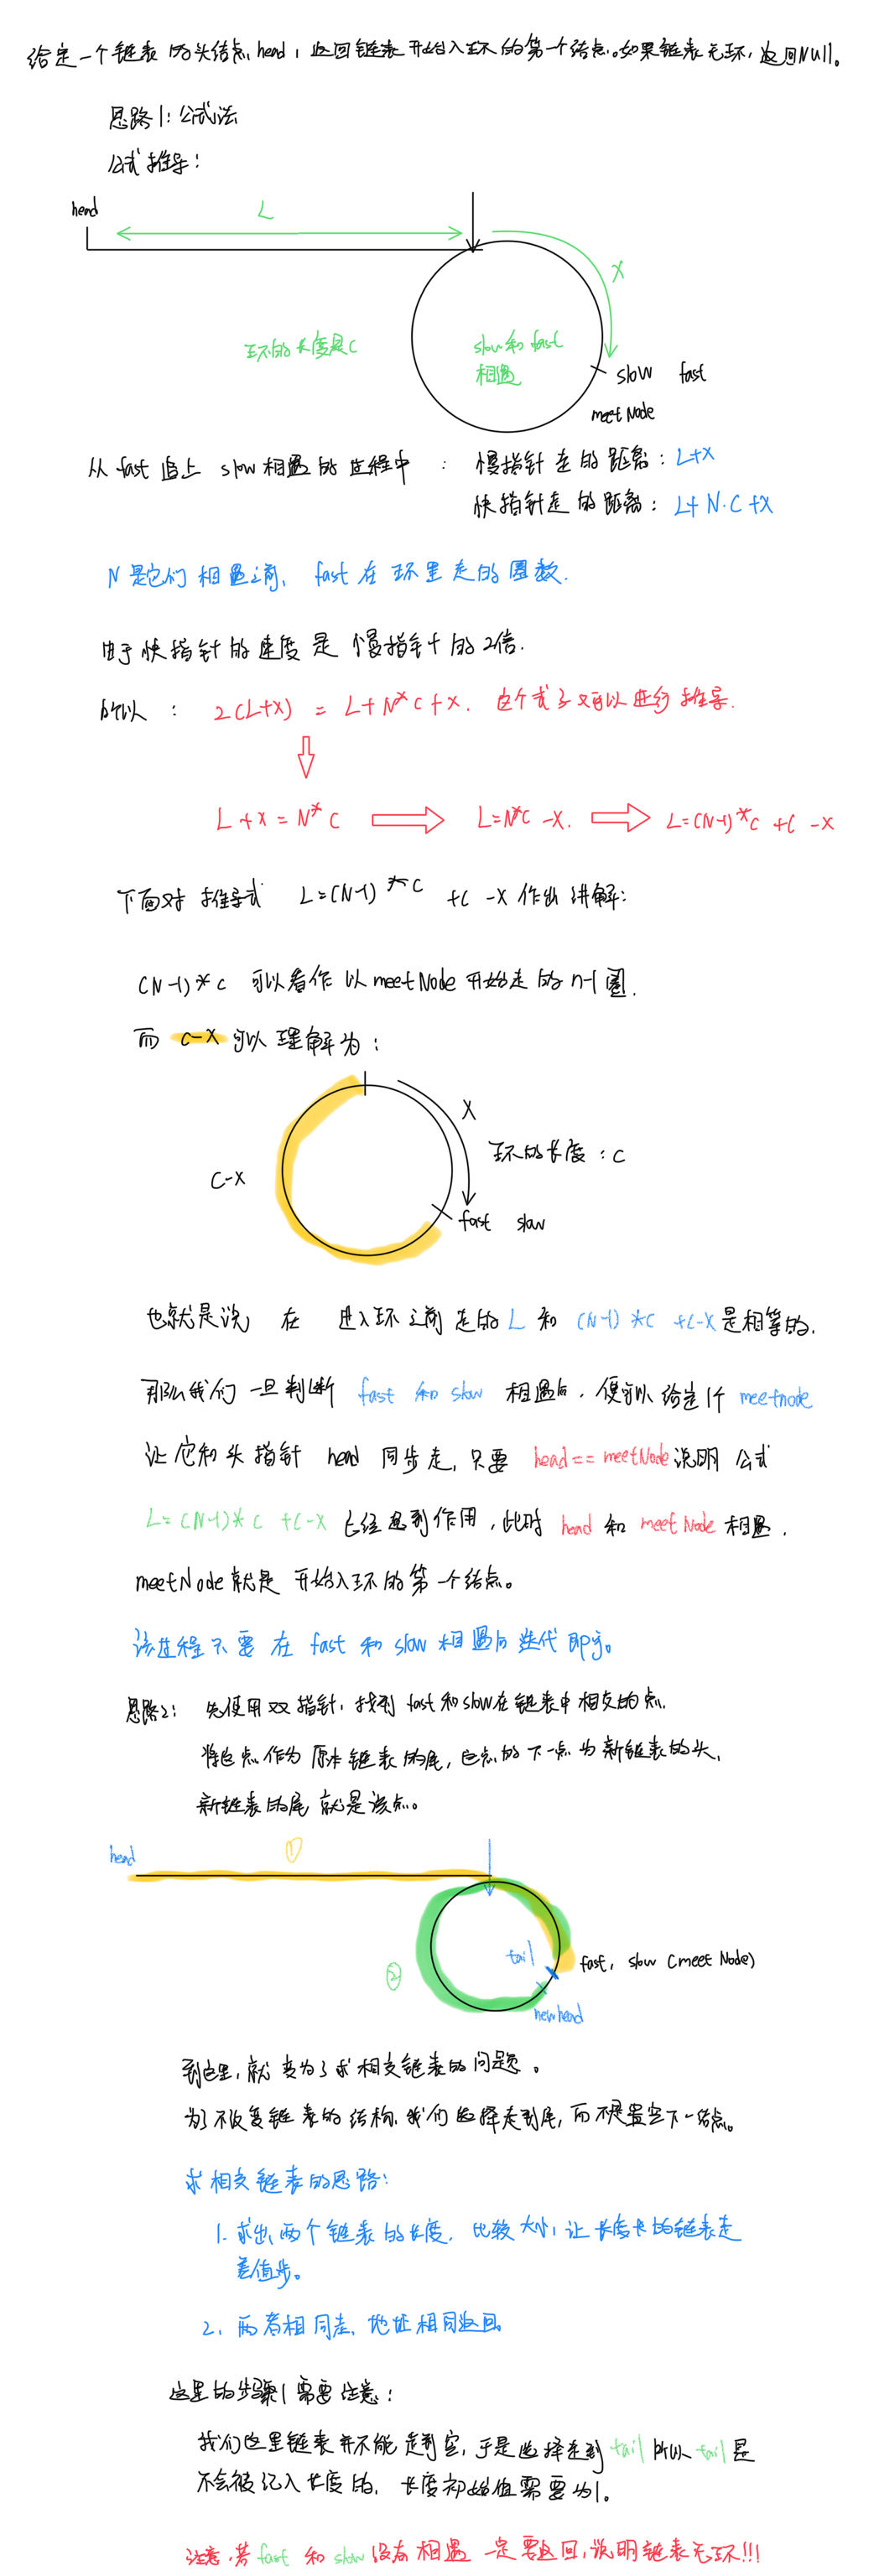 给定一个链表的头结点head,返回链表开始入环的第一个结点。如果链表无环,返回Null。
思路1:公式法
公式推导:
head
L
X
环的长度是C
slow和fast
相遇
slow fast
meetNode
从fast追上slow相遇的过程中: 慢指针走的距离:L+X
快指针走的距离:L+N·C+X
N是它们相遇之前,fast在环里走的圈数.
由于快指针的速度是慢指针的2倍.
所以: 2(L+X) = L+N*C+X. 这个式子又可以进行推导.
L+X=N*C L=N*C-X. L=(N-1)*C+C-X
下面对推导式 L=(N-1)*C+C-X 作出讲解:
(N-1)*C 可以看作以meetNode开始走的n-1圈.
而C-X可以理解为:
X
C-X
环的长度:C
fast slow
也就是说,在进入环之前走的L和(N-1)*C+C-X是相等的.
那么我们一旦判断fast和slow相遇后,便可以给定1个meetnode
让它和头指针head同步走,只要head==meetNode说明公式
L=(N-1)*C+C-X已经起到作用,此时head和meetNode相遇.
meetNode就是开始入环的第一个结点。
该过程不要在fast和slow相遇后迭代即可。
思路2: 先使用双指针,找到fast和slow在链表中相交的点.
将这点作为原本链表的尾,这点的下一点为新链表的头,
新链表的尾就是该点。
head
①
tail
fast, slow (meetNode)
②
newhead
到这里,就变为了求相交链表的问题。
为了不改变链表的结构,我们选择走到尾,而不是置空下一结点。
求相交链表的思路:
1.求出两个链表的长度,比较大小,让长度长的链表走
差值步。
2.两者相同走,地址相同返回
这里的步骤1需要注意:
我们这里链表并不能走到空,于是选择走到tail所以tail是
不会被记入长度的,长度初始值需要为1。
注意,若fast和slow没有相遇一定要返回,说明链表无环!!!